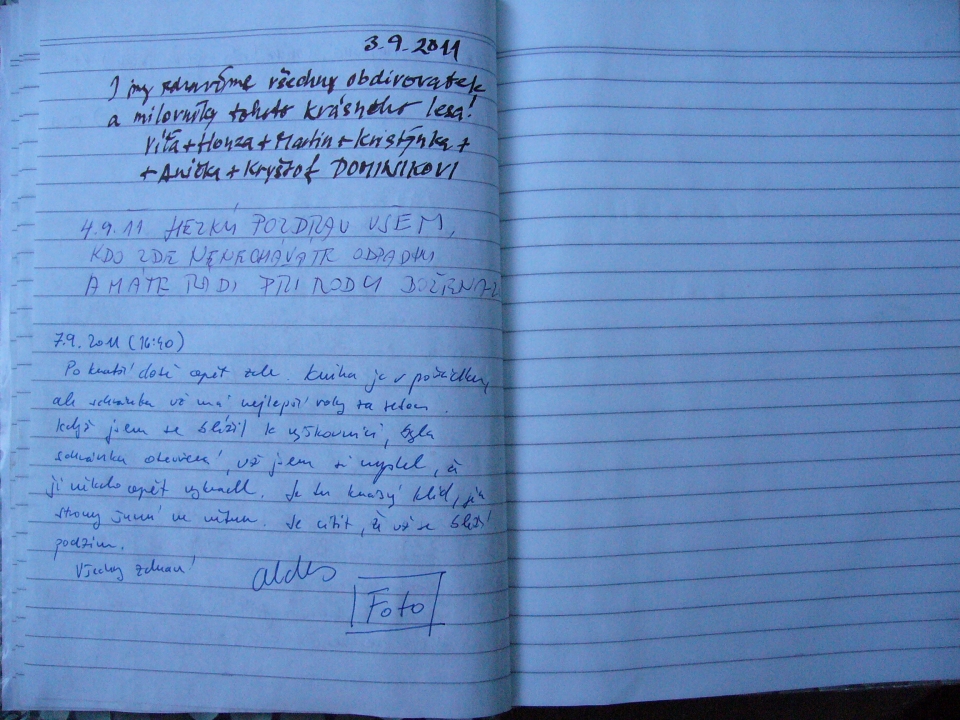 3.9.2011
I my zdravíme všechny obdivovatele
a milovníky tohoto krásného lesa!
Víťa + Honza + Martin + Kristýnka +
+ Anička + Kryštof DOMINÍKOVI
4.9.11 HEZKÝ POZDRAV VŠEM,
KDO ZDE NENECHÁVÁTE ODPADKY
A MÁTE RÁDI PŘÍRODU
7.9.2011 (16:40)
Po kratší době opět zde. Kniha je v pořádku,
ale schránka už má nejlepší roky za sebou.
Když jsem se blížil k výškovnici, byla
schránka otevřená, už jsem si myslel, že
ji někdo opět vykradl. Je tu krásný klid, jen
stromy šumí ve větru. Je cítit, že už se blíží
podzim.
Všechny zdraví
Foto